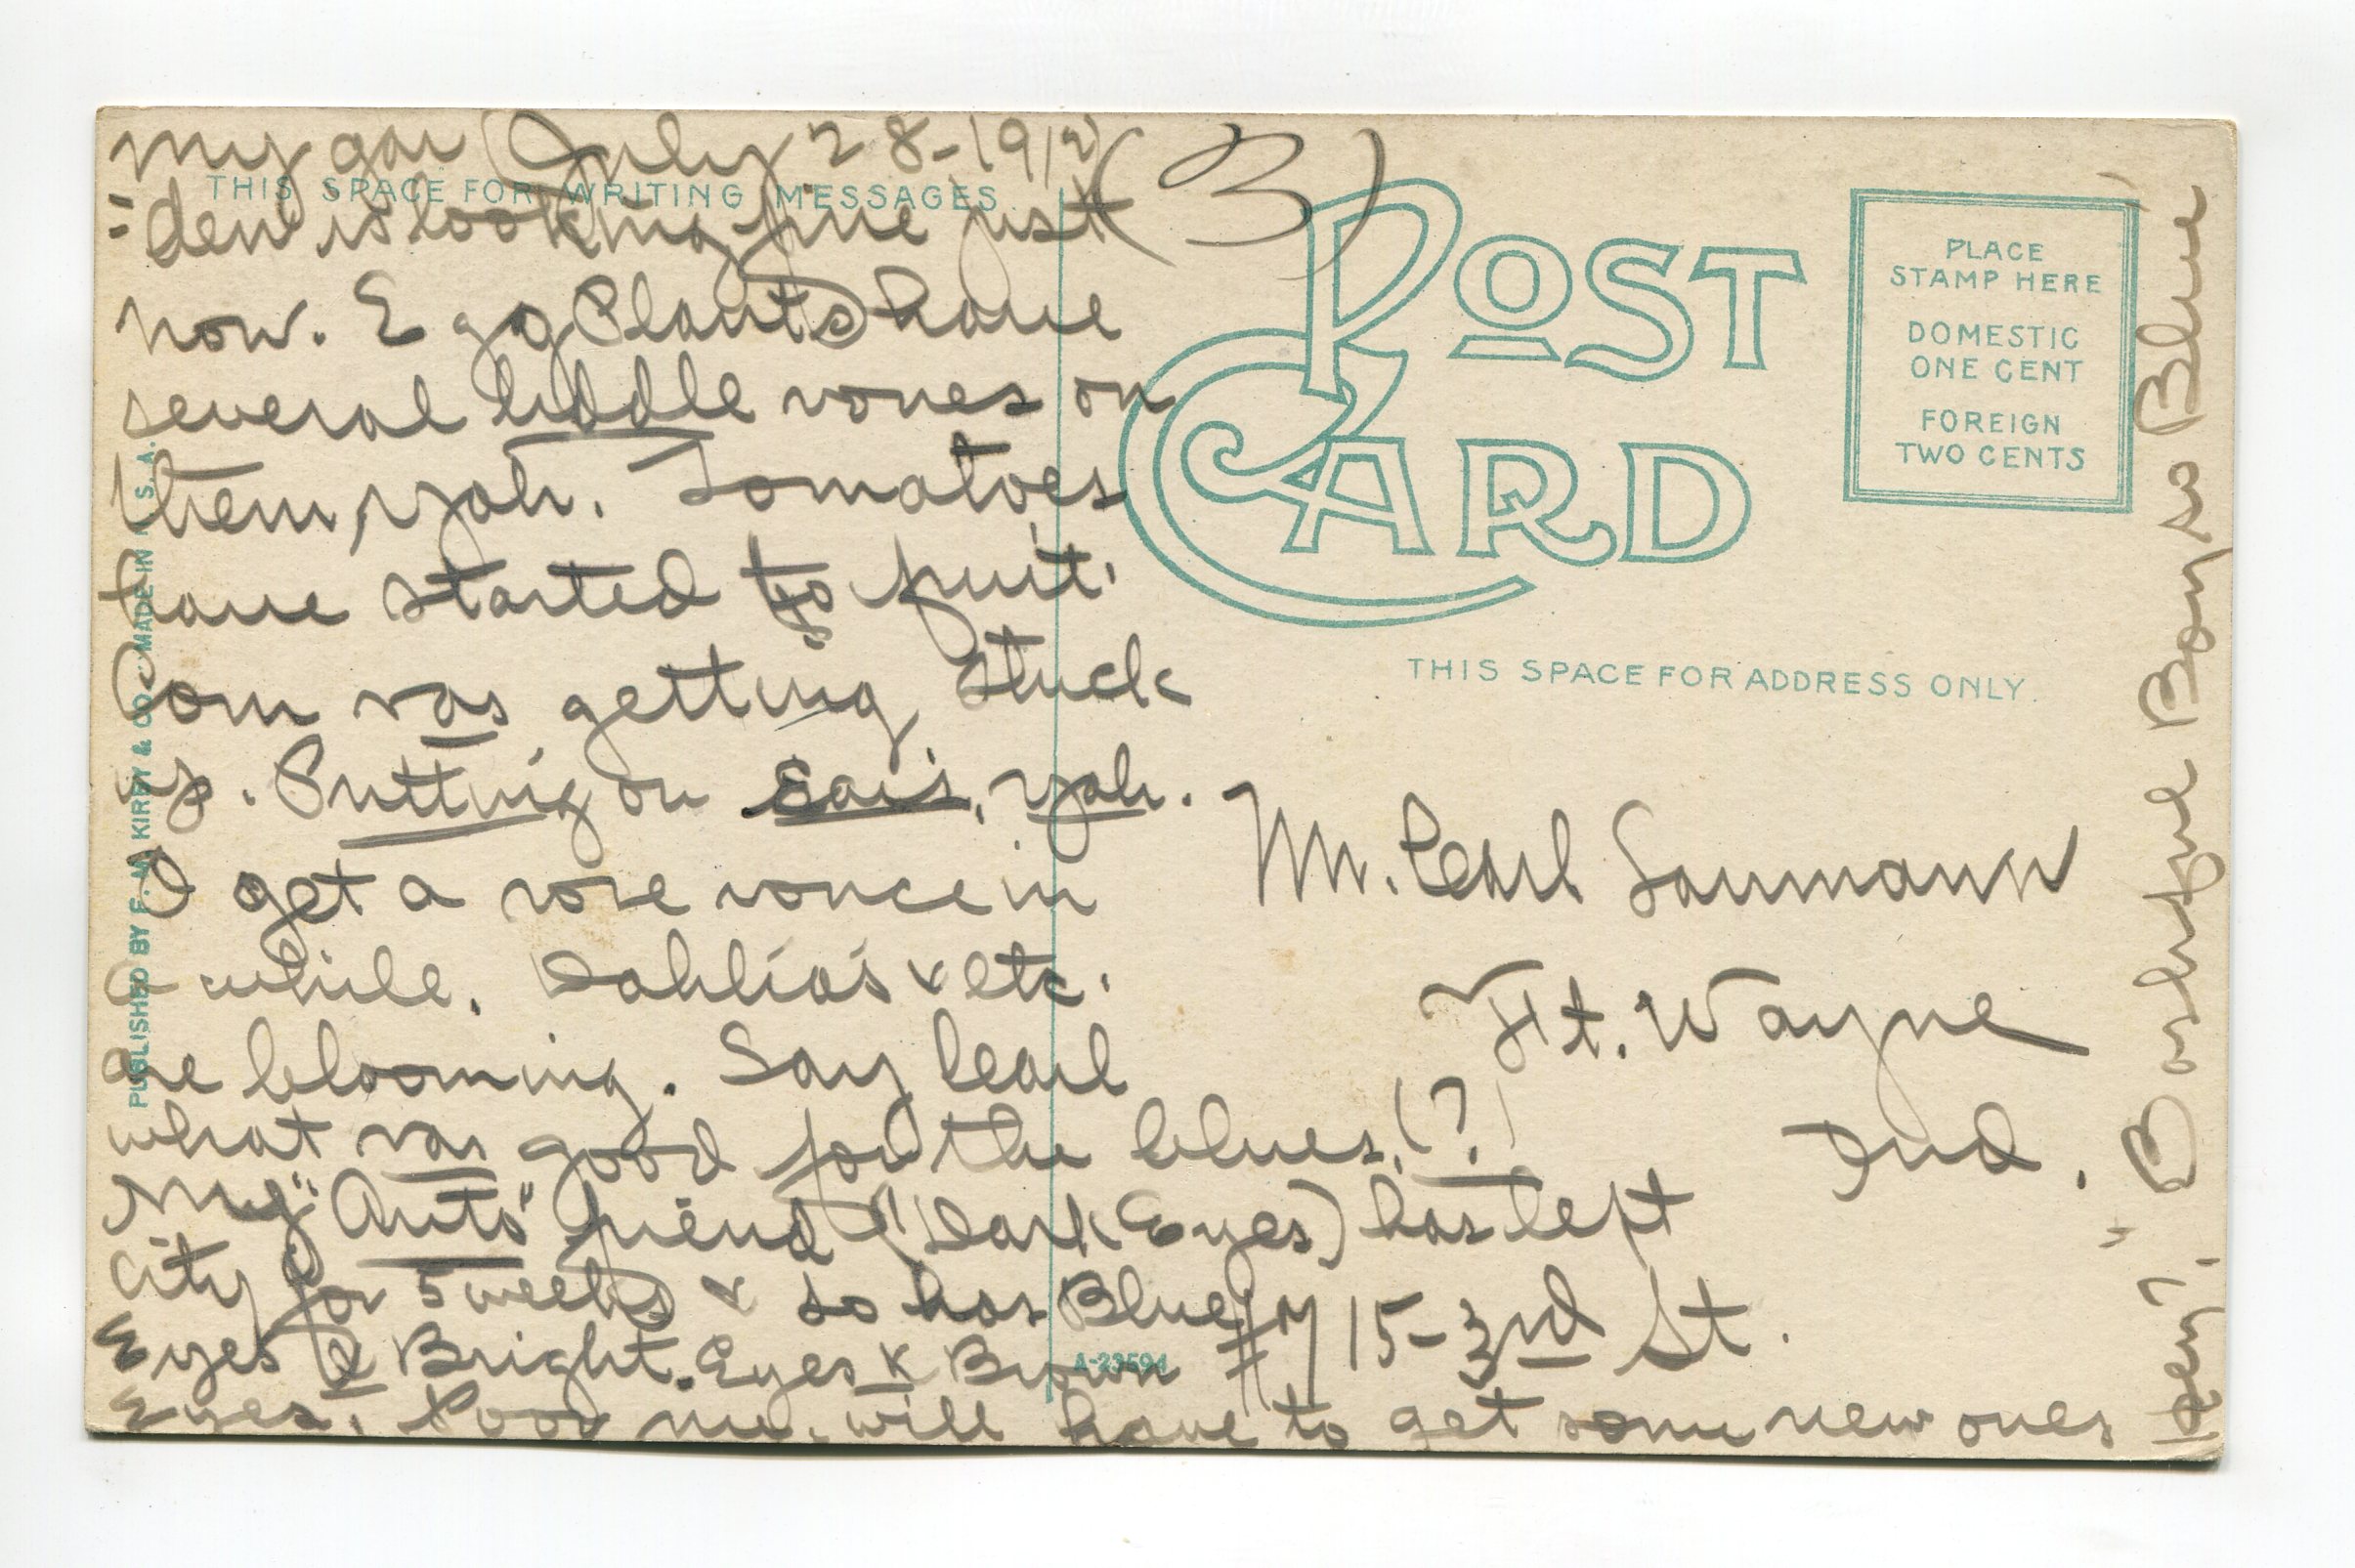 my gar (July 28-1912) (3)
THIS SPACE FOR WRITING MESSAGES.
= den is looking fine just
now. Egg Plants have
several liddle vones on
them, yah. Tomatoes
have started to fruit.
Corn vas getting stuck
up. Putting on Ears, yah.
I get a rose vonce in
a while. Dahlia's & etc.
are blooming. Say Pearl
what vas good for the blues (?)
My "Auto" friend (Dark Eyes) has left
City for 5 weeks & so has Blue
Eyes & Bright Eyes & Brown
Eyes. Poor me, will have to get some new ones
Hey?. "Bashful Boy so Blue
PUBLISHED BY F. M. KIRBY & CO. MADE IN U. S. A.
POST CARD
PLACE
STAMP HERE
DOMESTIC
ONE CENT
FOREIGN
TWO CENTS
THIS SPACE FOR ADDRESS ONLY.
Mr. Pearl Saumann
Ft. Wayne
Ind.
#1715-3rd St.
A-23594